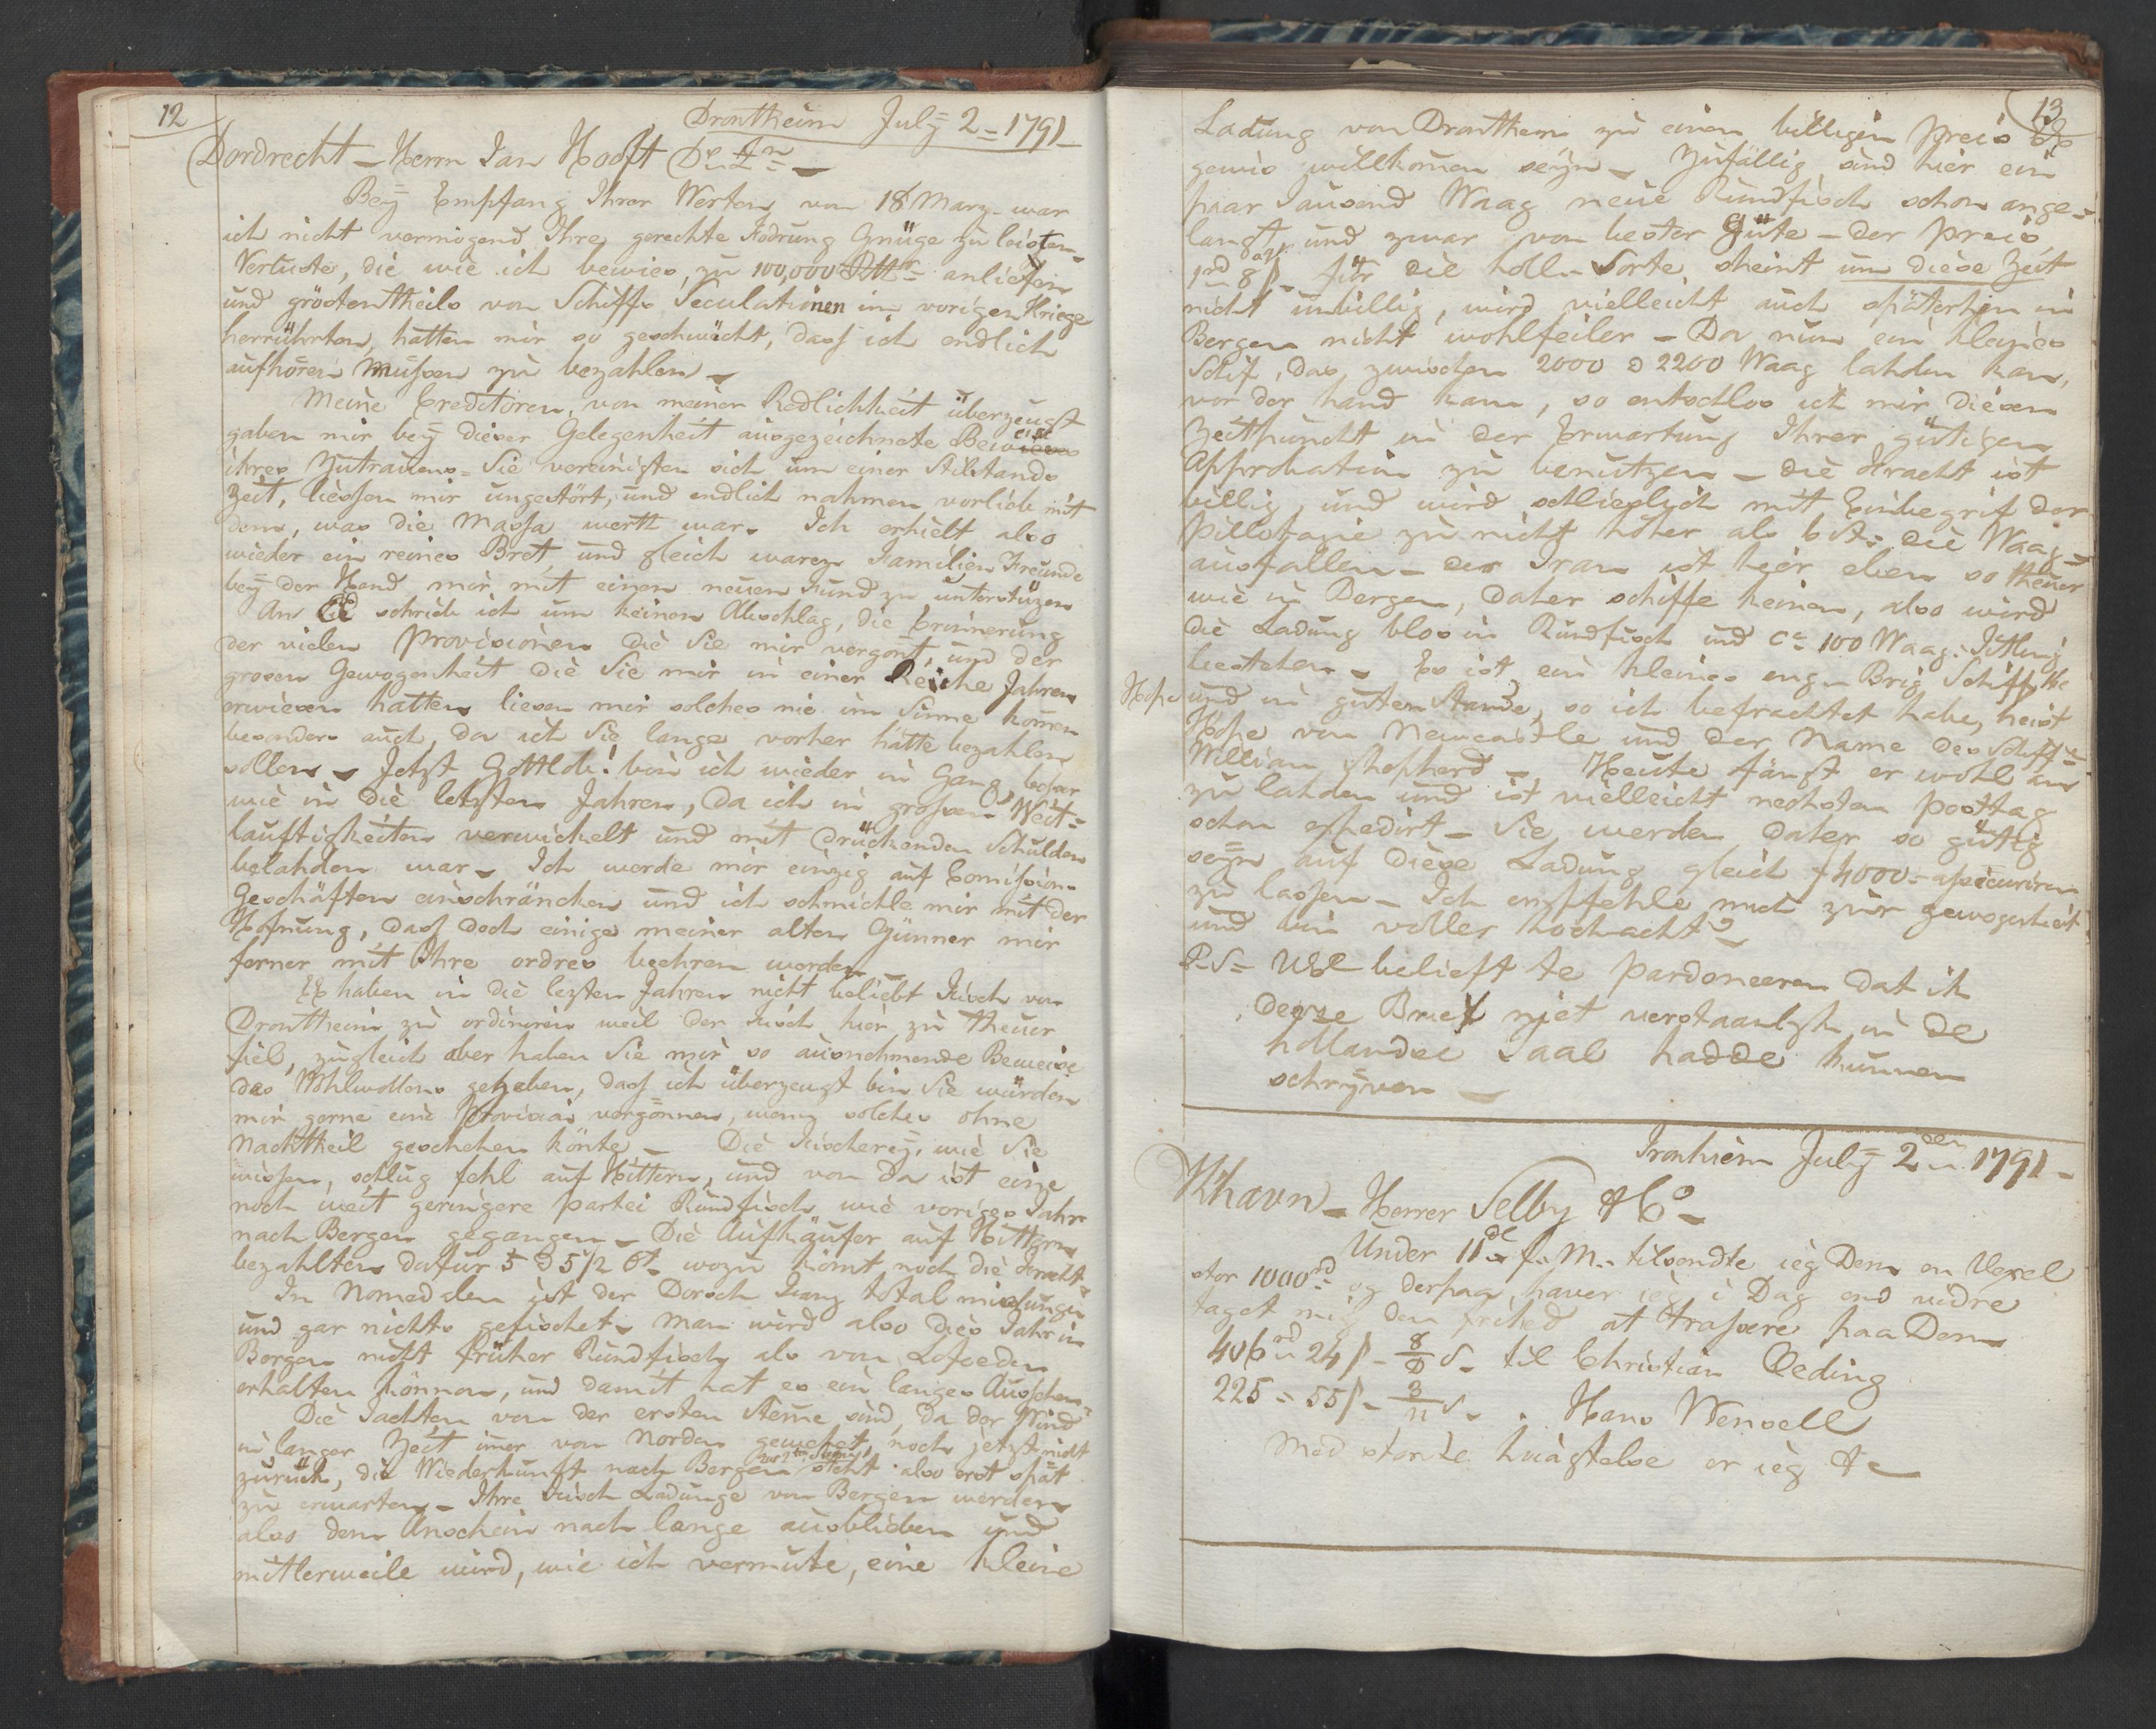 12
Drontheim July 2 = 1791
Dordrecht - Herrn Jan Hooft
Bey Empfang Ihrer Werten von 18 Marz war
ich nicht vermögend Ihre gerechte Fodrung Gnüge zu leisten
Verluste, die wie ich bewies, zu 100,000 anliefen
und gröstentheils von Schiffs Speculationen im vorigen Kriege
herrührten, hatten mir so geschwächt, dass ich endlich
aufhören müssen zu bezahlen -
Meine Creditoren, von meiner Redlichkeit überzeugt
gaben mir bey dieser Gelegenheit ausgezeichnete
ihres Zutrauens - Sie vereinigten sich um einer Stilstands
Zeit, liessen mir ungestört, und endlich nahmen vorlieb mit
dem, was die Massa werth war. Ich erhielt also
wieder ein reines Bret, und gleich waren Familien Freunde
bey der Hand mir mit einen neuen Fund zu unterstüzen
An schrieb ich um keinen Abschlag, die Erinnerung
der vielen Provisionen die Sie mir vergönt, und der
grosen Gewogenheit die Sie mir in einer Reiche Jahren
erwiesen hatten liesen mir solches nie im Sinne komen
besonders auch, da ich Sie lange vorher hätte bezahlen
sollen - Jetzt Gottlob! bin ich wieder in Gang, besser
wie in die letzten Jahren, da ich in grossen Weit=
lauftigkeiten verwickelt und mit drückenden Schulden
belahden war - Ich werde mir einzig auf Comissions
Geschäften einschräncken und ich schmichle mir mit der
Hofnung, dass doch einige meiner alten Gönner mir
ferner mit Ihre ordres beehren werden
haben in die lezten Jahren nicht beliebt Fisch von
Drontheim zu ordiniren weil der Fisch hier zu theuer
fiel, zugleich aber haben Sie mir so ausnehmende Beweise
des Wohlwollens gegeben, dass ich überzeugt bin Sie würden
mir gerne eine Provision vergönnen, wenn solches ohne
Nachtheil geschehen könte - Die Fischerey, wie Sie
wissen, schlug fehl auf Hittern, und von da ist eine
noch weit geringere partei Rundfisch wie voriges Jahr
nach Bergen gegangen - Die Aufkäufer auf Hittern
bezahlten dafur 5 a 5 1/2 wozu kömt noch die Fracht
In Nomedalen ist der Dorsch Fang total mislungen
und gar nichts gefischet - man wird also dies Jahr in
Bergen nicht früher Rundfisch als von Lofoeden
erhalten können, und damit hat es ein langes Aussehen
Die Jachten von der ersten Steme sind, da der Wind
in langer Zeit imer von Norden gewehet, noch jetzt nicht
zurück, die Wiederkunft nach Bergen steht also erst spät
zu erwarten - Ihre Fisch Ladunge von Bergen werden
also dem Anschein nach lange ausbleiben und
mitlerweile wird, wie ich vermute, eine kleine
13
Ladung von Drontheim zu einen billigen Preis
gewis willkomen seyn - Zufällig sind hier ein
paar Tausend Waag neue Rundfisch schon ange=
langt und zwar von bester Güte - der Preis
1 rd 8 f für die holl. Sorte scheint um diese Zeit
nicht unbillig, wird vielleicht auch späterhin in
Bergen nicht wohlfeiler - Da nun ein kleines
Schif, das zwischen 2000 a 2200 Waag lahden kan,
vor der hand kam, so entschlos ich mir diesen
Zeitpunckt in der Erwartung Ihrer gütigen
Approbation zu benutzen - die Fracht ist
billig, und wird schlieslich mit Einbegrif der
Pillotagie zu nicht höher als 6 die Waag
ausfallen - der Tran ist hier eben so theuer
wie in Bergen, daher schiffe keinen, also wird
die Ladung blos in Rundfisch und ca 100 Waag Titling
bestehen - Es ist ein kleines eng. Brig Schiff
Hope
und in guten Stande, so ich befrachtet habe, heist
Hope von Newcastle und der Name des
William Shepherd - Heute fängt er wohl an
zu lahden und ist vielleicht nechsten Posttag
schon expedirt - Sie werden daher so gütig
seyn auf diese Ladung gleich f 4000 = assecuriren
zu lassen - Ich empfehle mich zur gewogenheit
und bin voller hochacht
P.S. = UEl belieft te pardoneeren dat ik
deeze Brief niet verstaanlyk in de
hollandse Taal hadde kunnen
schryven -
Tronhiem July 2 den 1791 -
Khavn - Herrer Selby & Co -
Under 11 de f. M. tilsendte ieg Dem en Vexel
stor 1000 rd og derpaa haver ieg i Dag end vidre
taget mig den frihed at trassere paa Dem
406 rd 24 f - 8/d S. til Christian Oeding
225 = 55 f - 3/n S. Hans Wensell
Med storste hviagtelse er ieg